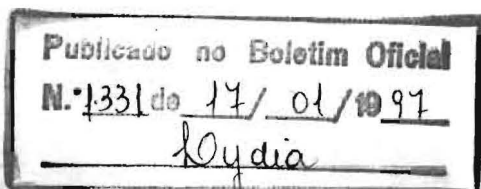 Publicado no Boletim Oficial
N.º 1.331 de 17/ 01/19 97
Lydia